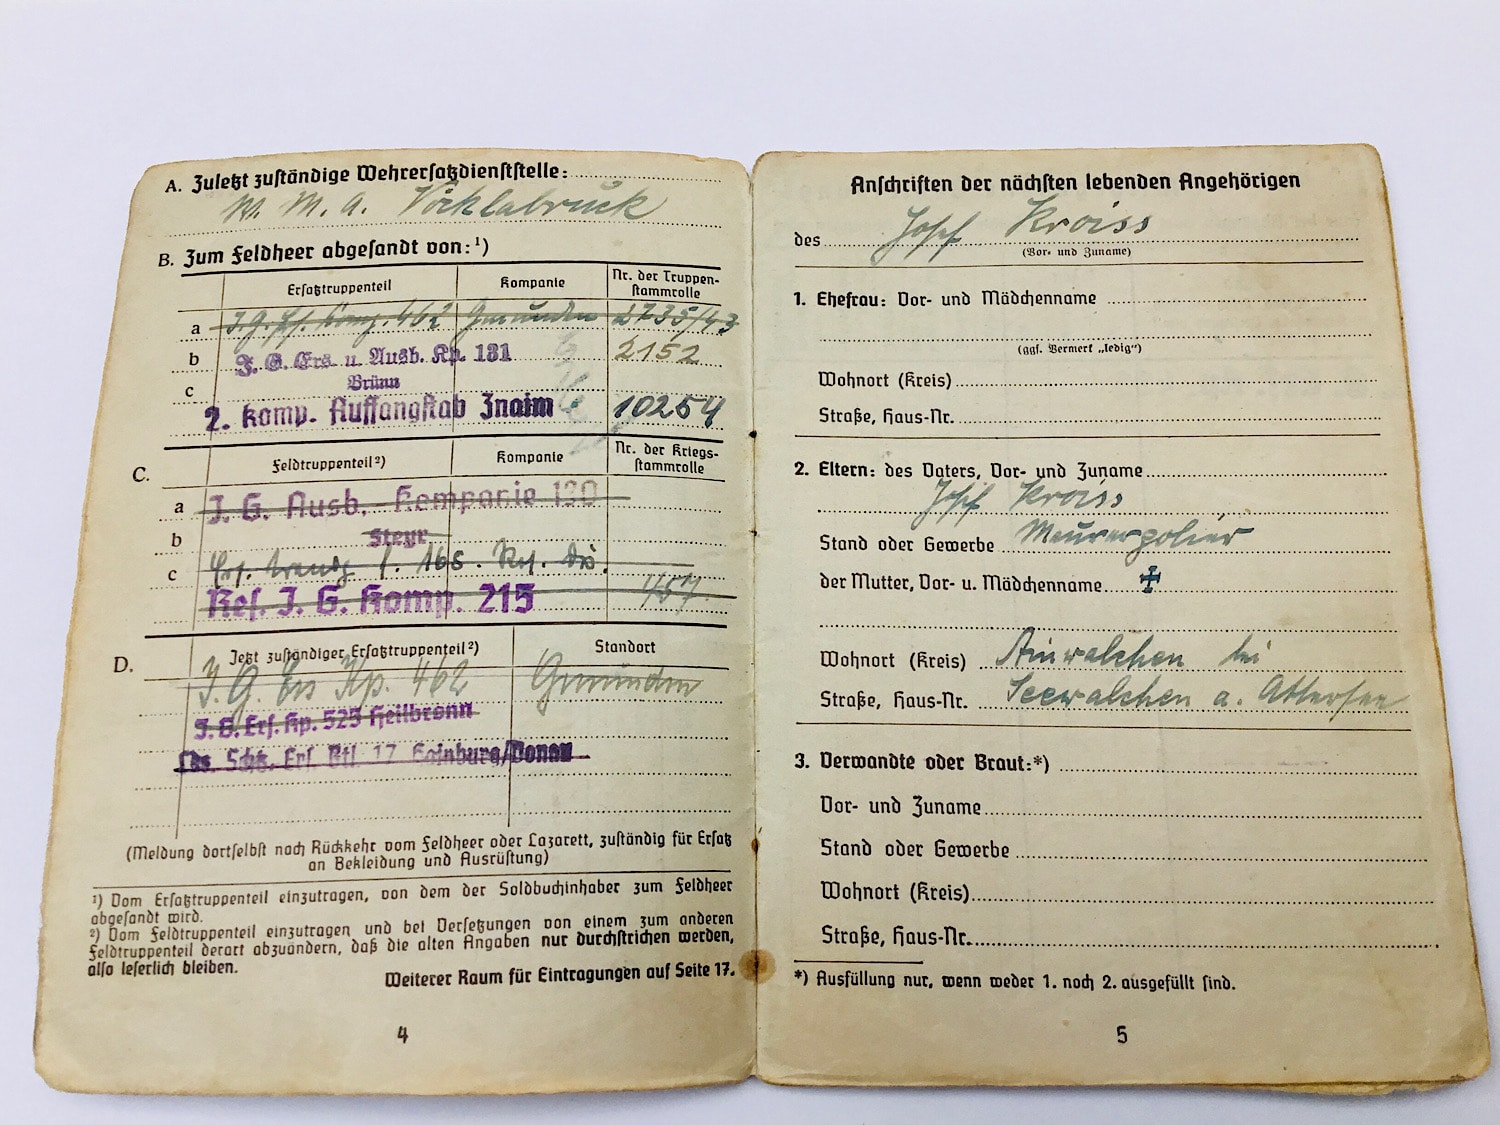 A. Zuletzt zuständige Wehrersatzdienststelle:
W. M. A. Vöcklabruck
B. Zum Feldheer abgesandt von: ¹)
Ersatztruppenteil Kompanie Nr. der Truppen-
stammrolle
a 462 Gmunden 2735/43
b J. G. Ers. u. Ausb. Kp. 131 2152
Brünn
c 2. Komp. Auffangstab Znaim 10254
C. Feldtruppenteil ²) Kompanie Nr. der Kriegs-
stammrolle
a J. G. Ausb.-Kompanie 130
b Steyr
c f. 168.
Res. J. G. Komp. 215 457
D. Jetzt zuständiger Ersatztruppenteil ²) Standort
J. G. Ers. Kp. 462 Gmunden
J. G. Ers. Kp. 525 Heilbronn
Lds. Schtz. Ers. Btl. 17 Hainburg/Donau
(Meldung dortselbst nach Rückkehr vom Feldheer oder Lazarett, zuständig für Ersatz
an Bekleidung und Ausrüstung)
¹) Vom Ersatztruppenteil einzutragen, von dem der Soldbuchinhaber zum Feldheer
abgesandt wird.
²) Vom Feldtruppenteil einzutragen und bei Versetzungen von einem zum anderen
Feldtruppenteil derart abzuändern, daß die alten Angaben nur durchstrichen werden,
also leserlich bleiben.
Weiterer Raum für Eintragungen auf Seite 17.
4
Anschriften der nächsten lebenden Angehörigen
des Josef Kroiss
(Vor- und Zuname)
1. Ehefrau: Vor- und Mädchenname
(ggf. Vermerk „ledig")
Wohnort (Kreis)
Straße, Haus-Nr.
2. Eltern: des Vaters, Vor- und Zuname
Josef Kroiss
Stand oder Gewerbe Maurerpolier
der Mutter, Vor- u. Mädchenname ✝
Wohnort (Kreis) Ainwalchen bei
Straße, Haus-Nr. Seewalchen a. Attersee
3. Verwandte oder Braut:*)
Vor- und Zuname
Stand oder Gewerbe
Wohnort (Kreis)
Straße, Haus-Nr.
*) Ausfüllung nur, wenn weder 1. noch 2. ausgefüllt sind.
5